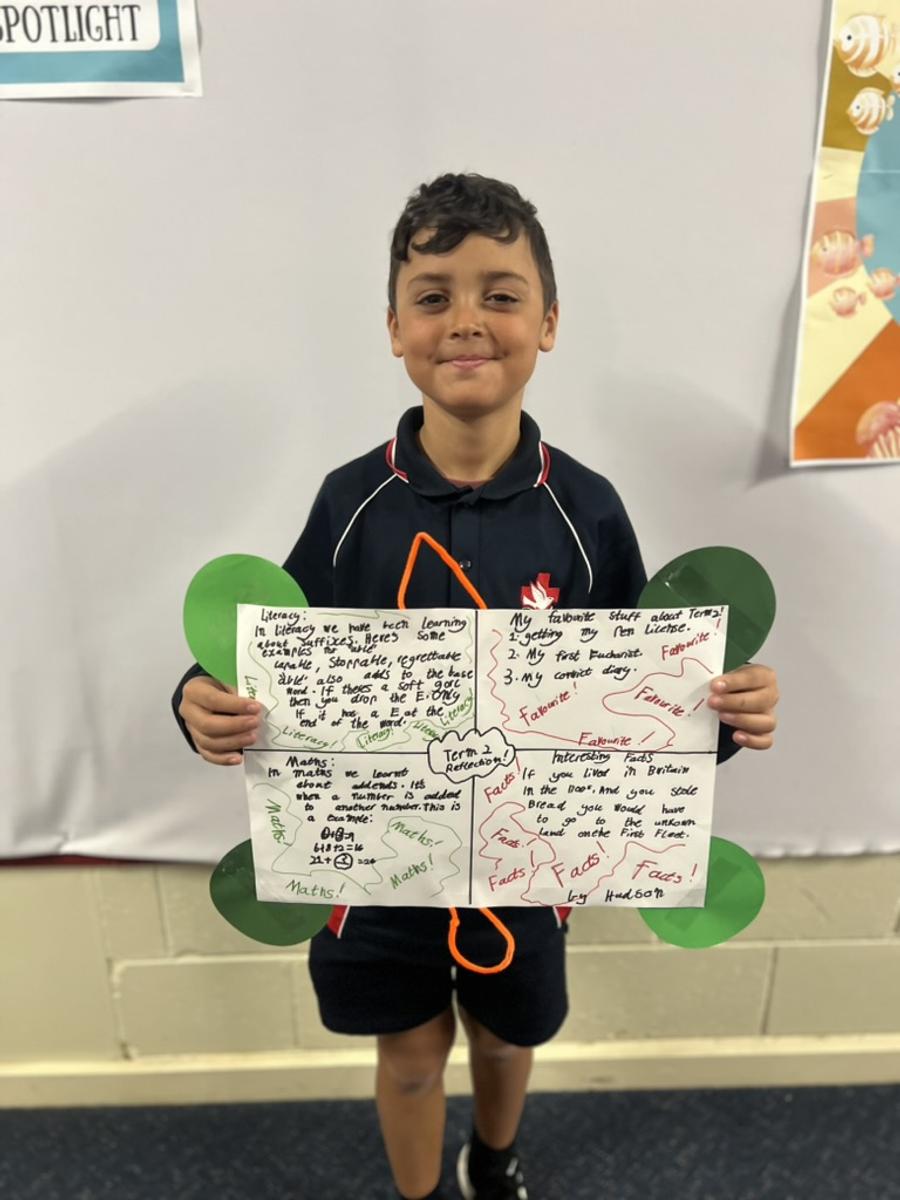 SPOTLIGHT
Literacy:
In literacy we have been learning
about suffixes. Here's some
examples for "able"
capable, Stoppable, regrettable
"able" also adds to the base
word. If theres a soft g or c
then you drop the E. Only
If it has a E at the
end of the word.
Literacy!
Literacy!
Literacy!
My favourite stuff about Term 2!
1. getting my Pen License.
2. My first Eucharist.
3. My conict diary.
Favourite!
Favourite!
Favourite!
Favourite!
Term 2
Reflection!
Maths:
In maths we learnt
about addends. It's
when a number is added
to another number. This is
a example:
6+8+2=16
21+3=24
Maths!
Maths!
Maths!
Maths!
Interesting Facts
If you lived in Britain
In the 1700s. And you stole
Bread you would have
to go to the unkown
land on the First Fleet.
Facts!
Facts!
Facts!
Facts!
Facts!
by Hudson